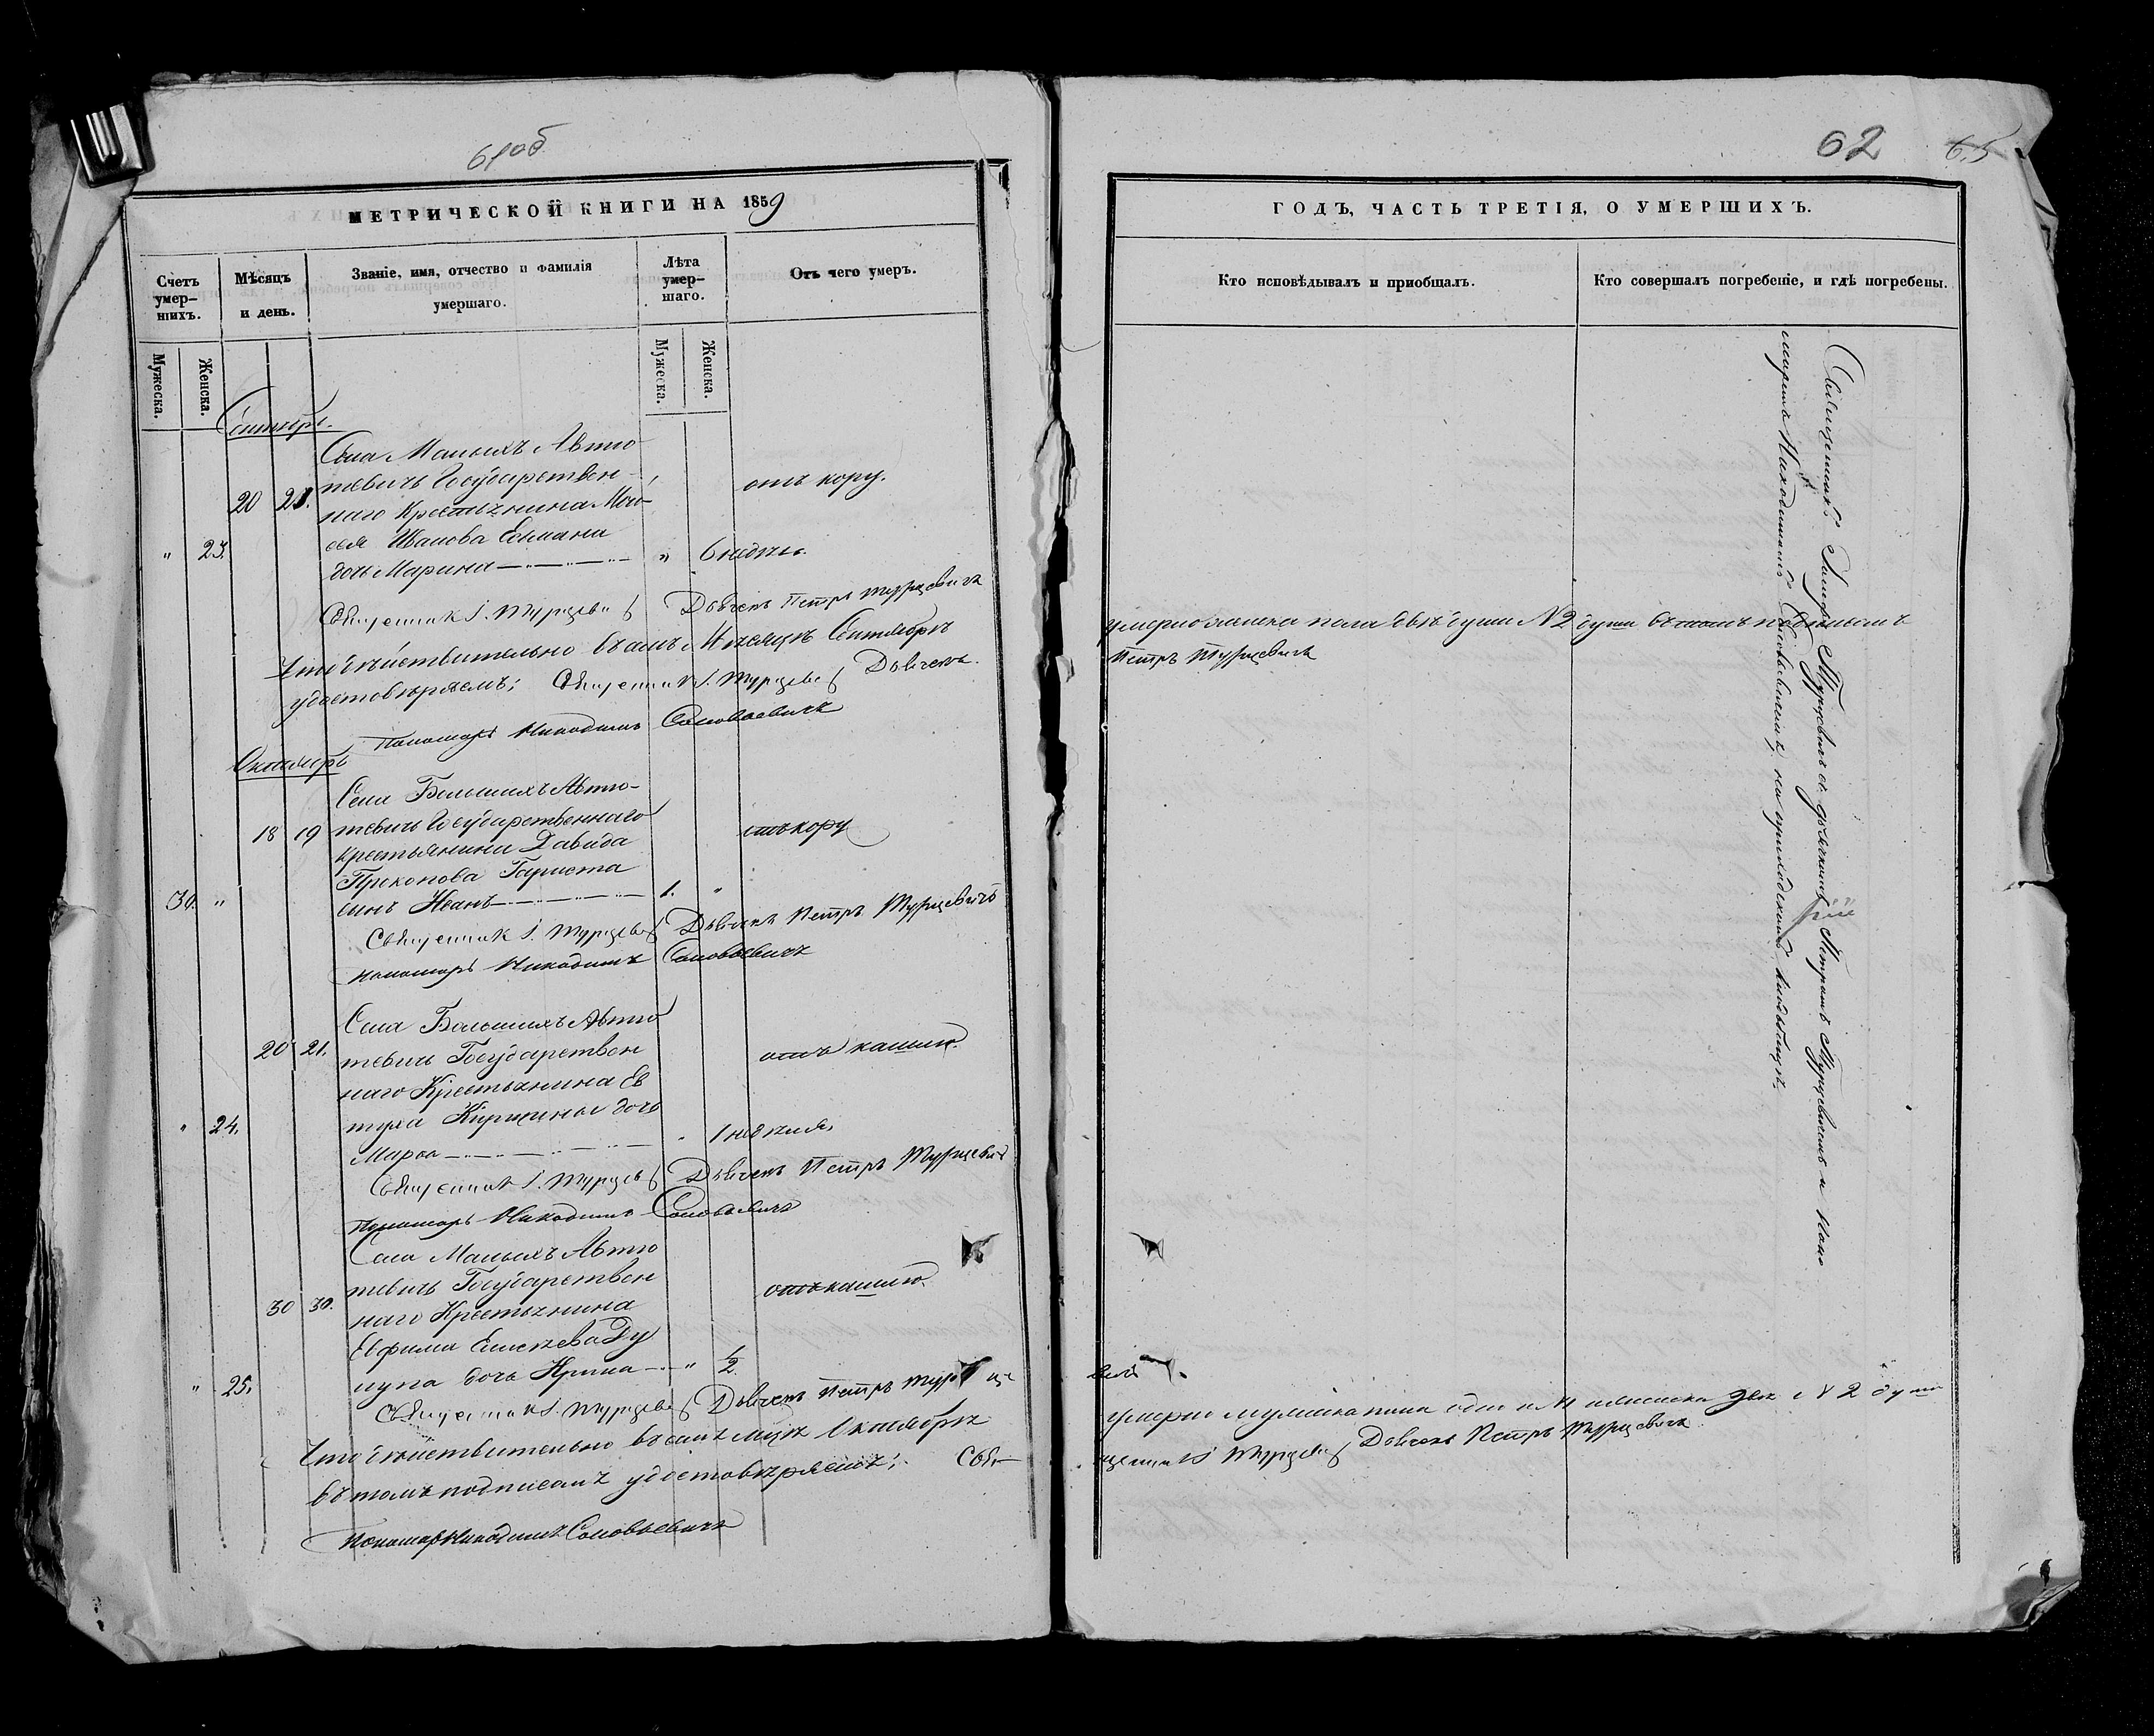 61об
МЕТРИЧЕСКОЙ КНИГИ НА 1859
Счетъ умер- шихъ.
Мѣсяцъ и день.
Званіе, имя, отчество и фамилія умершаго.
Лѣта умер- шаго.
Отъ чего умеръ.
Мужеска.
Женска.
Мужеска.
Женска.
Сентябрь.
Села Малыхъ Автю-
тевичь Государствен-
20 21. наго Крестьянина Мои-
отъ кору.
сея Иванова
" 23. дочь Марина " 6 недѣль.
Священникъ І. Турцевичъ Дьячекъ Петръ Турцевичъ
Что дѣйствительно въ семъ Мѣсяцѣ Сентябрѣ
удостовѣряемъ; Священникъ І. Турцевичъ Дьячекъ
Пономарь Никодимъ Соловьевичъ
Октябрь
Села Большихъ Автю-
18 19 тевичь Государственнаго
отъ кору
крестьянина Давида
Прокопова
30. " сынъ Иванъ 1. "
Священникъ І. Турцевичъ Дьячекъ Петръ Турцевичъ
пономарь Никодимъ Соловьевичъ
Села Большихъ Автю
20 21. тевичь Государствен
отъ кашлю.
наго Крестьянина Ев
дочь
" 24. " 1 недѣля.
Священникъ І. Турцевичъ Дьячекъ Петръ Турцевичъ
Пономарь Никодимъ Соловьевичъ
Села Малыхъ Автю
тевичь Государствен
30 30. наго Крестьянина
отъ кашлю.
Евфима
" 25. дочь Ирина " 1/2
Священникъ І. Турцевичъ Дьячекъ Петръ Турце
Что дѣйствительно въ семъ мцѣ Октябрѣ
въ томъ подписомъ удостовѣряемъ; Свя-
Пономарь Никодимъ Соловьевичъ
62 65
ГОДЪ, ЧАСТЬ ТРЕТІЯ, О УМЕРШИХЪ.
Кто исповѣдывалъ и пріобщалъ.
Кто совершалъ погребеніе, и гдѣ погребены.
Священникъ Турцевичъ съ дьячкомъ Петромъ Турцевичемъ и поно
маремъ Никодимомъ Соловьевичемъ на приходскомъ кладбищѣ.
умерло женска пола двѣ души № 2 души въ томъ подписомъ
Петръ Турцевичъ
вичъ
умерло мужеска пола одна № 1 и женска двѣ № 2 души
щенникъ І. Турцевичъ Дьячекъ Петръ Турцевичъ.